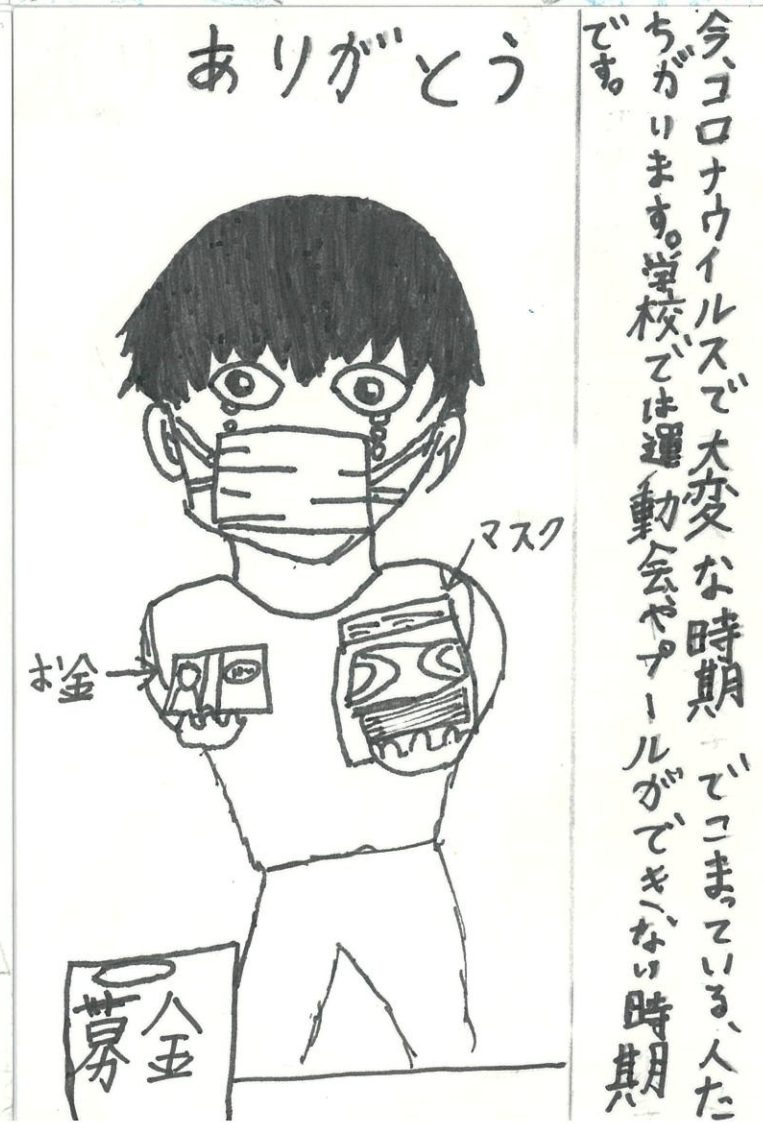 今、コロナウイルスで大変な時期でこまっている、人た
ちがいます。学校では運動会やプールができない時期
です。
ありがとう
マスク
お金
募金